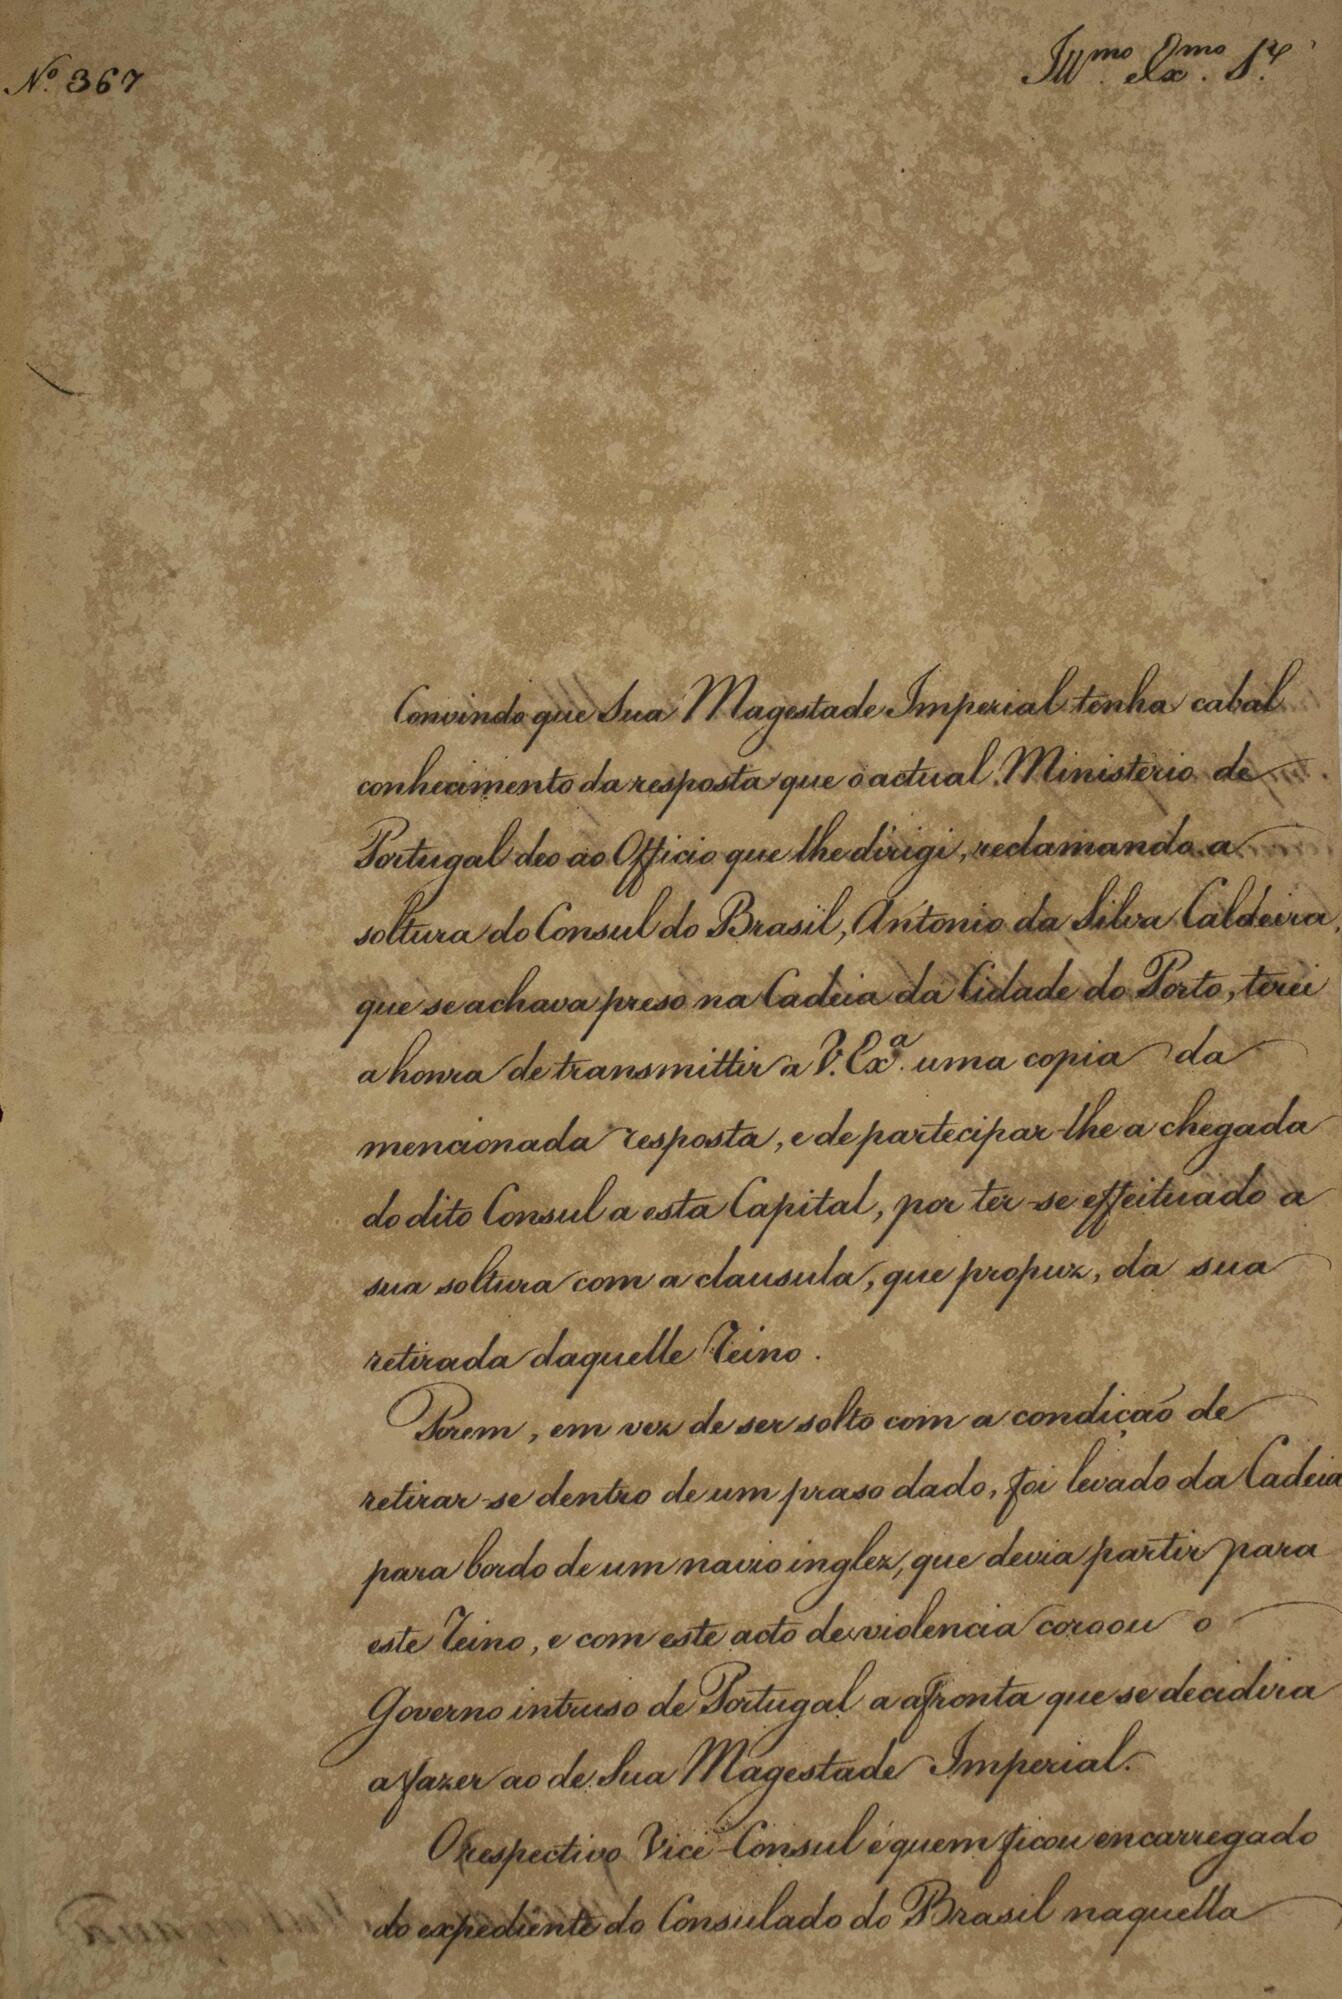 Nº. 367
Illmo. Exmo. Sr.
Convindo que Sua Magestade Imperial tenha cabal
conhecimento da resposta que o actual Ministerio de
Portugal deo ao Officio que lhe dirigi, reclamando a
soltura do Consul do Brasil, Antonio da Silva Caldeira,
que se achava preso na Cadeia da Cidade do Porto, terei
a honra de transmittir a V. Exª. uma copia da
mencionada resposta, e de partecipar-lhe a chegada
do dito Consul a esta Capital, por ter-se effeituado a
sua soltura com a clausula, que propuz, da sua
retirada daquelle Reino.
Porem, em vez de ser solto com a condição de
retirar-se dentro de um praso dado, foi levado da Cadeia
para bordo de um navio inglez, que devia partir para
este Reino, e com este acto de violencia coroou o
Governo intruso de Portugal a afronta que se decidira
a fazer ao de Sua Magestade Imperial.
O respectivo Vice-Consul é quem ficou encarregado
do expediente do Consulado do Brasil naquella